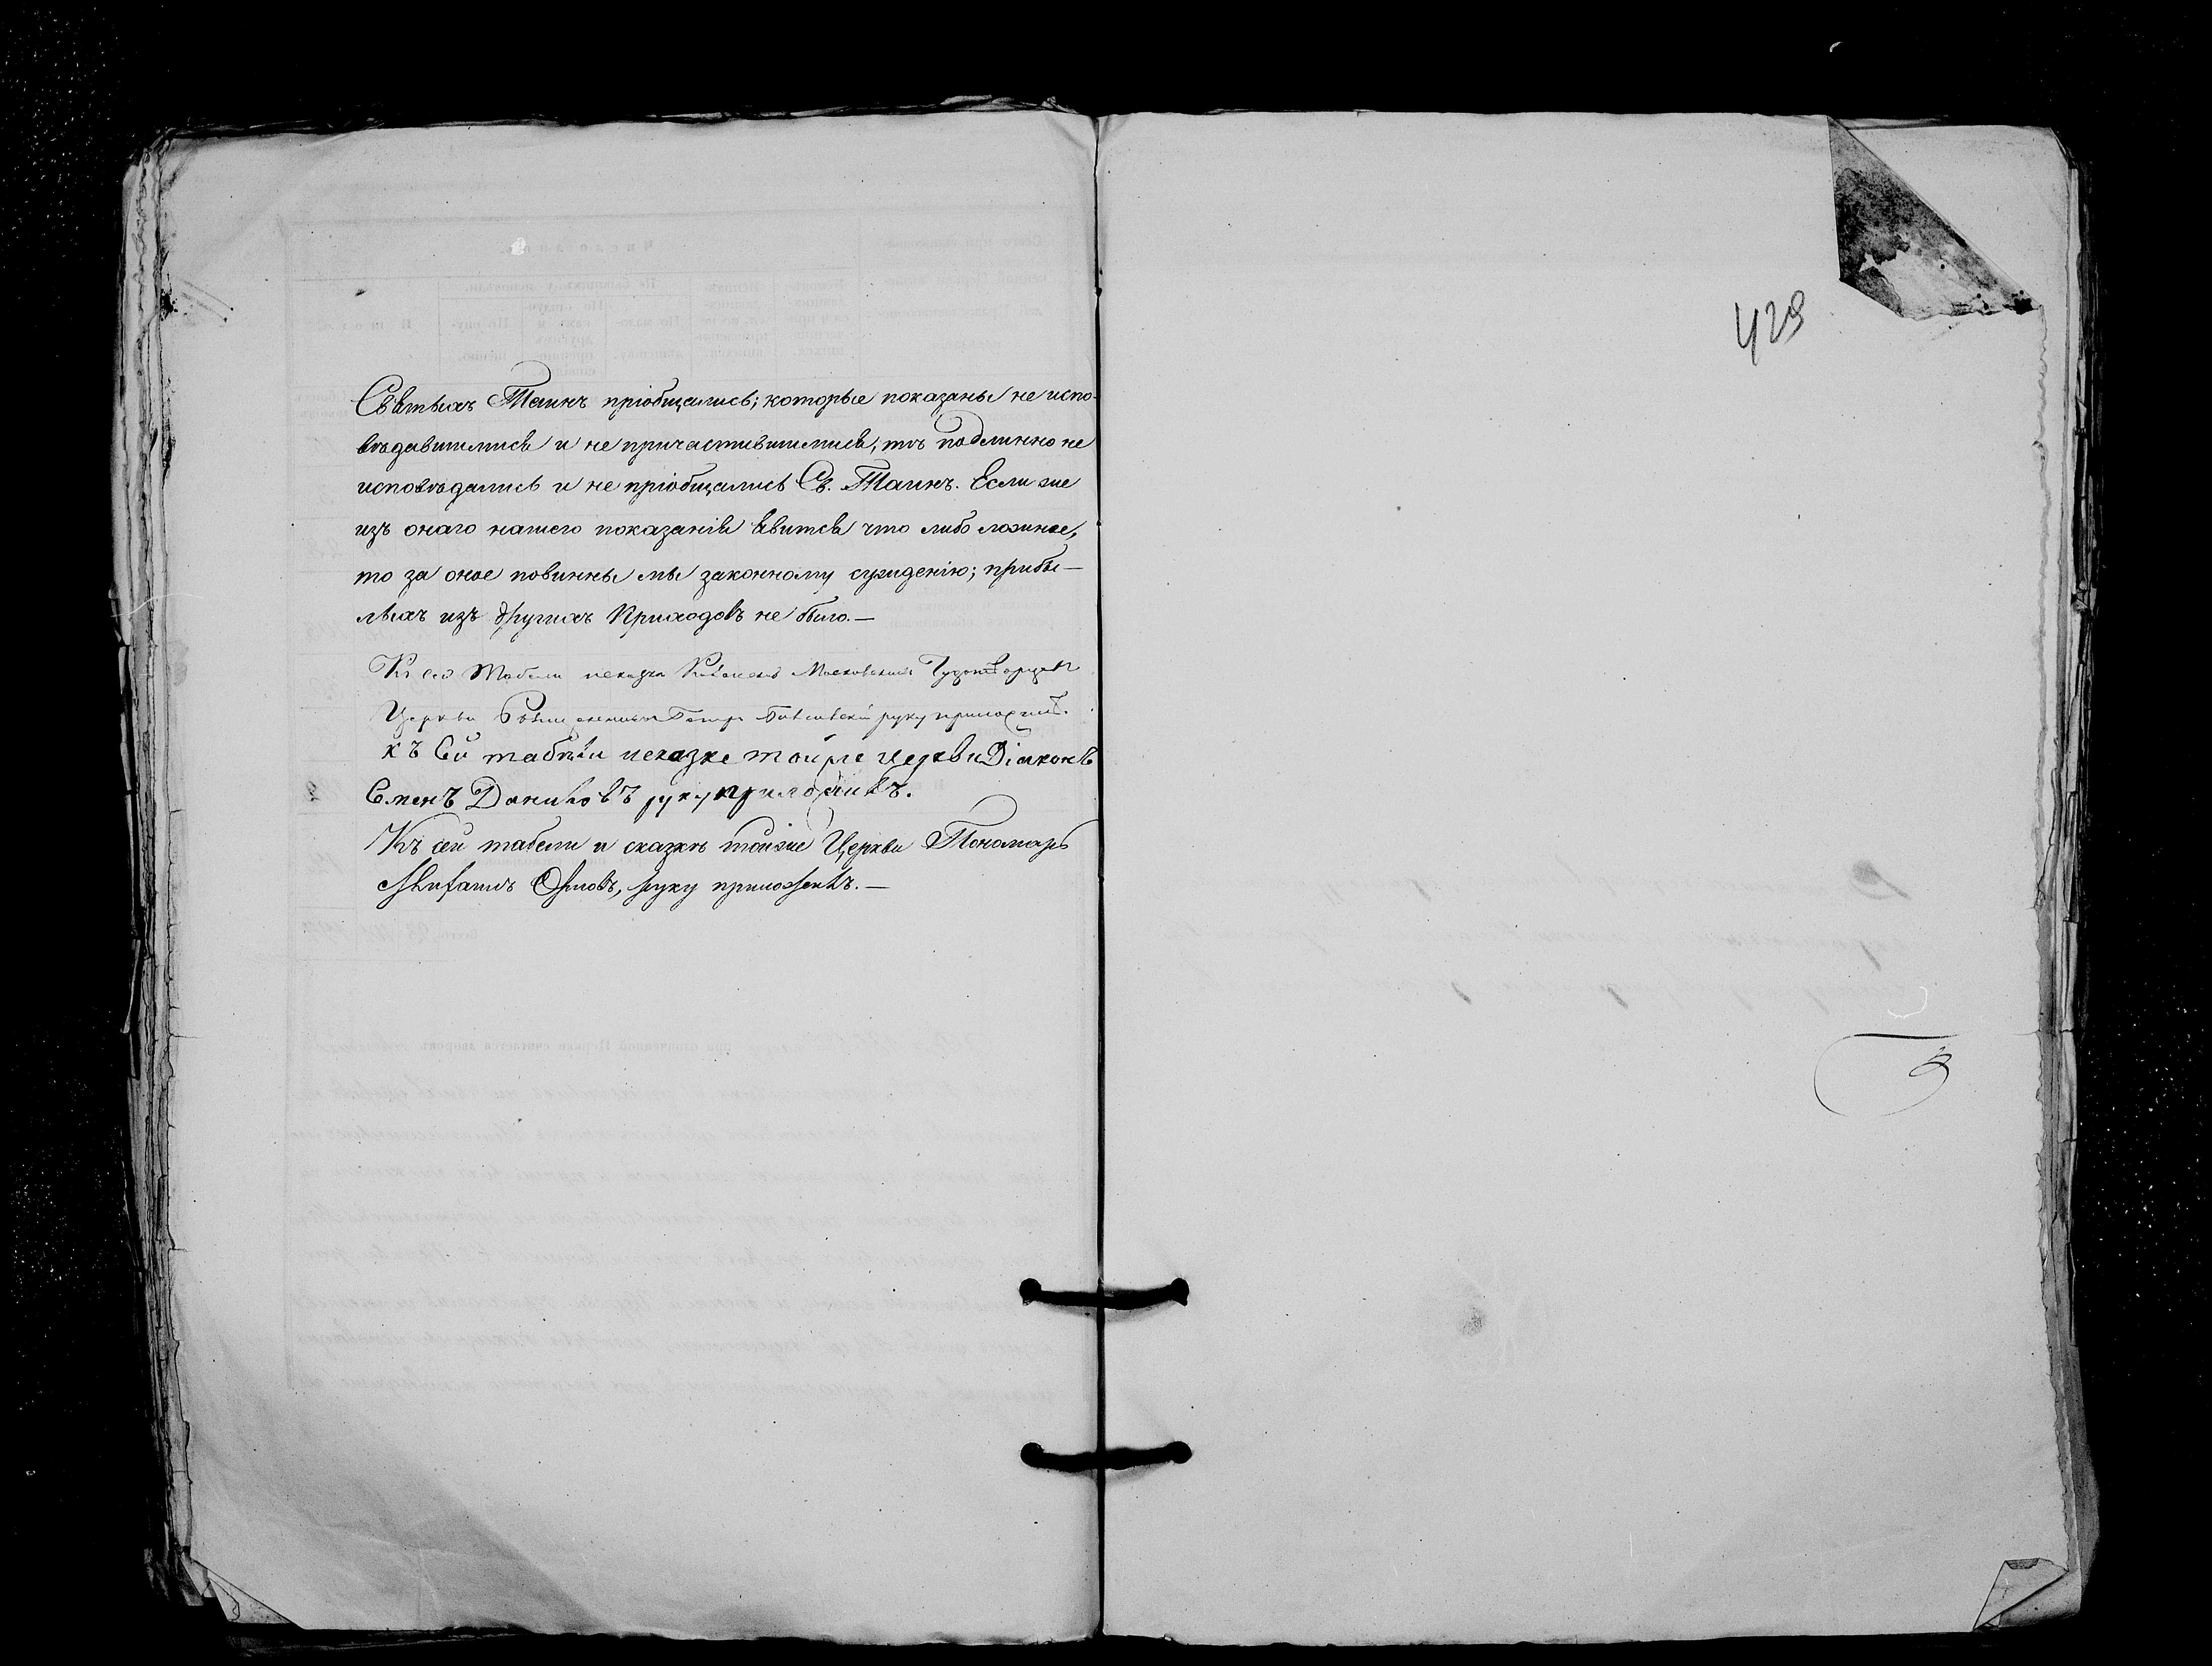 Святыхъ Таинъ пріобщались; которые показаны не испо-
вѣдавшимися и не причастившимися, тѣ подлинно не
исповѣдались и не пріобщались Св. Таинъ. Если же
изъ онаго нашего показанія явится что либо ложное,
то за оное повинны мы законному сужденію; прибы-
лыхъ изъ другихъ Приходовъ не было.—
Московскихъ Чудотворцевъ
Церкви Священникъ Петръ руку приложилъ.
къ Сей табели исказке тойже церкви Діаконъ
Семенъ Даниловъ руку приложилъ.
Къ сей табели и сказкѣ тойже Церкви Пономарь
руку приложилъ.—
429